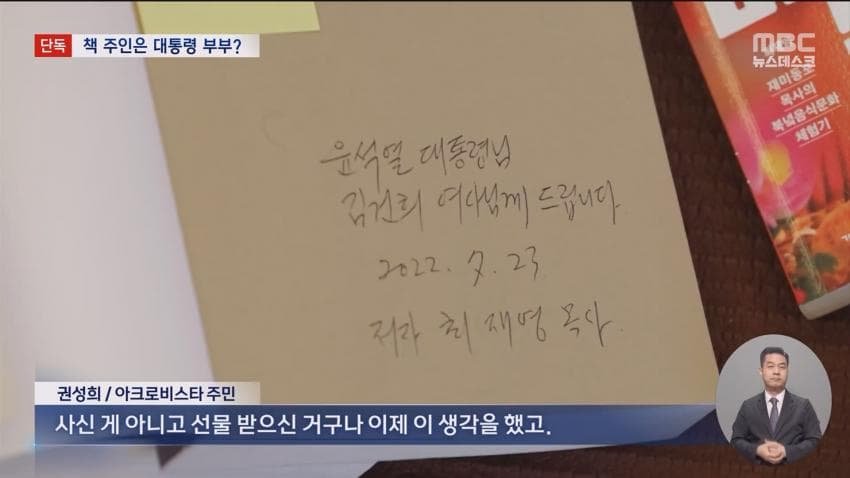 단독 책 주인은 대통령 부부?
MBC
뉴스데스크
재미동포
목사의
북녘음식문화
체험기
윤석열 대통령님
김건희 여사님께 드립니다.
2022. 7. 23
저자 최재영 목사.
권성희 / 아크로비스타 주민
사신 게 아니고 선물 받으신 거구나 이제 이 생각을 했고.